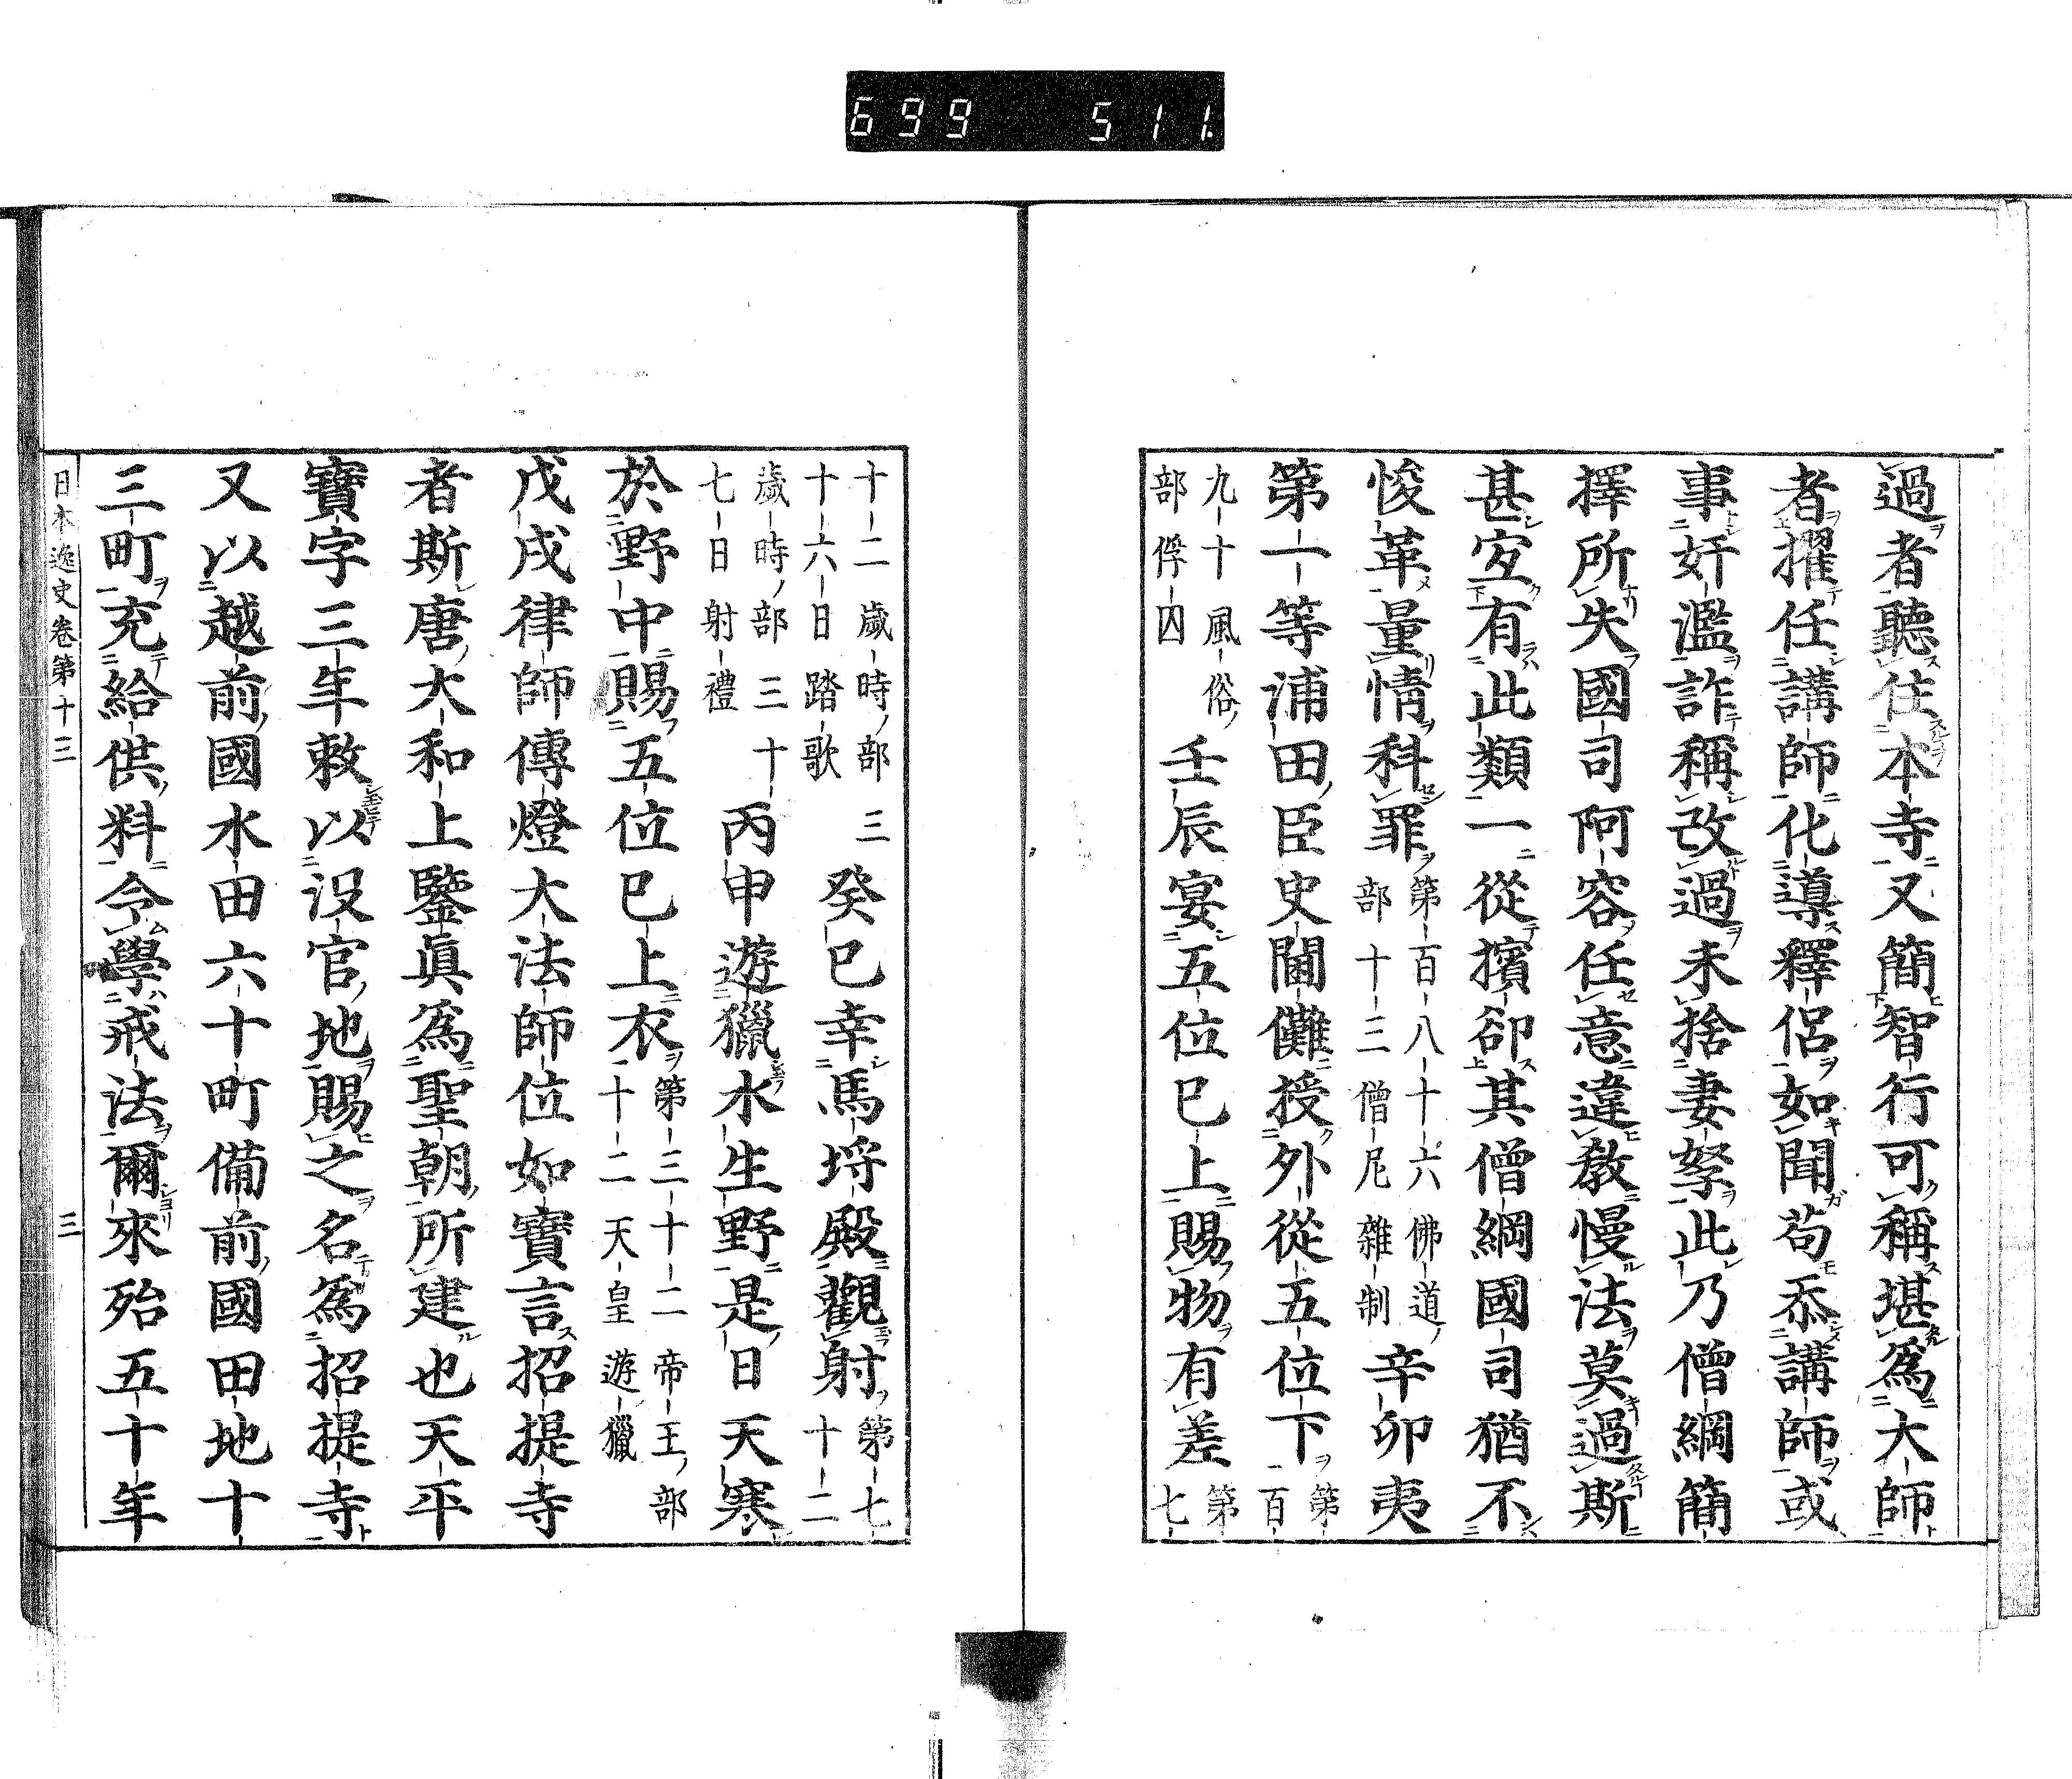 699 511.
過者聽住本寺又簡智行可稱堪爲大師
者擢任講師化導釋侶如聞苟忝講師或
事奸濫詐稱改過未捨妻孥此乃僧綱簡
擇所失國司阿容任意違教慢法莫過斯
甚宐有此類一從擯卻其僧綱國司猶不
悛革量情科罪第百八十六佛道部十三僧尼雜制辛卯夷
第一等浦田臣史閫儺授外從五位下第一百
九十風俗部俘囚壬辰宴五位已上賜物有差第七
十二歲時部三十六日踏歌癸巳幸馬埒殿觀射第七十二
歲時部三十七日射禮丙申遊獵水生野是日天寒
於野中賜五位已上衣第三十二帝王部十二天皇遊獵
戊戌律師傳燈大法師位如寶言招提寺
者斯唐大和上鑒眞爲聖朝所建也天平
寶字三年敕以沒官地賜之名爲招提寺
又以越前國水田六十町備前國田地十
三町充給供料令學戒法爾來殆五十年
日本逸史卷第十三 三